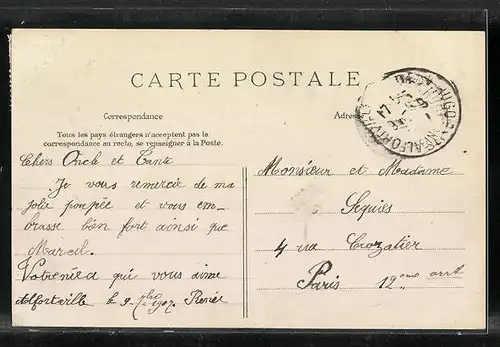 CARTE POSTALE
Correspondance
Tous les pays étrangers n'acceptent pas la
correspondance au recto, se renseigner à la Poste.
Chers Oncle et Tante
Je vous remercie de ma
jolie poupée et vous em-
brasse bien fort ainsi que
Marcel.
Votre nièce qui vous aime
Alfortville le 9-7bre-1907. Renée
Monsieur et Madame
4 rue Crozatier
Paris 12eme arrt